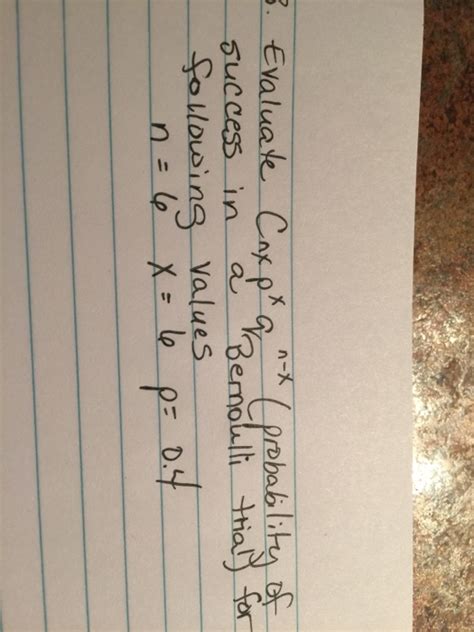 3. Evaluate Cnx p^x q^n-x (probability of
success in a Bernoulli trial) for
following values
n = 6 x = 6 p = 0.4